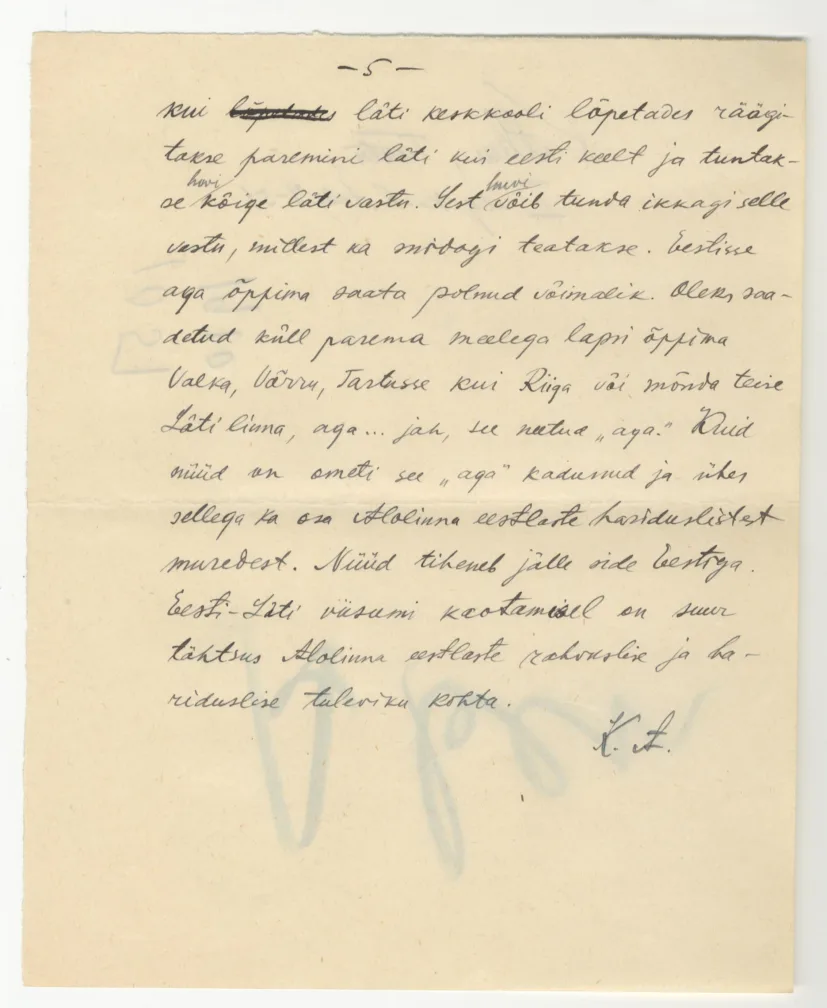 - 5 -
kui lõpetades läti keskkooli lõpetades räägi-
takse paremini läti kui eesti keelt ja tuntak-
huvi huvi
se kõige läti vastu. Sest võib tunda ikkagi selle
vastu, millest ka midagi teatakse. Eestisse
aga õppima saata polnud võimalik. Oleks saa-
detud küll parema meelega lapsi õppima
Valka, Võrru, Tartusse kui Riiga või mõnda teise
Läti linna, aga... jah, see neetud „aga." Kuid
nüüd on ometi see „aga" kadunud ja ühes
sellega ka osa Alolinna eestlaste hariduslistest
muredest. Nüüd tiheneb jälle side Eestiga.
Eesti-Läti viisumi kaotamisel on suur
tähtsus Alolinna eestlaste rahvuslise ja ha-
riduslise tuleviku kohta.
K. A.